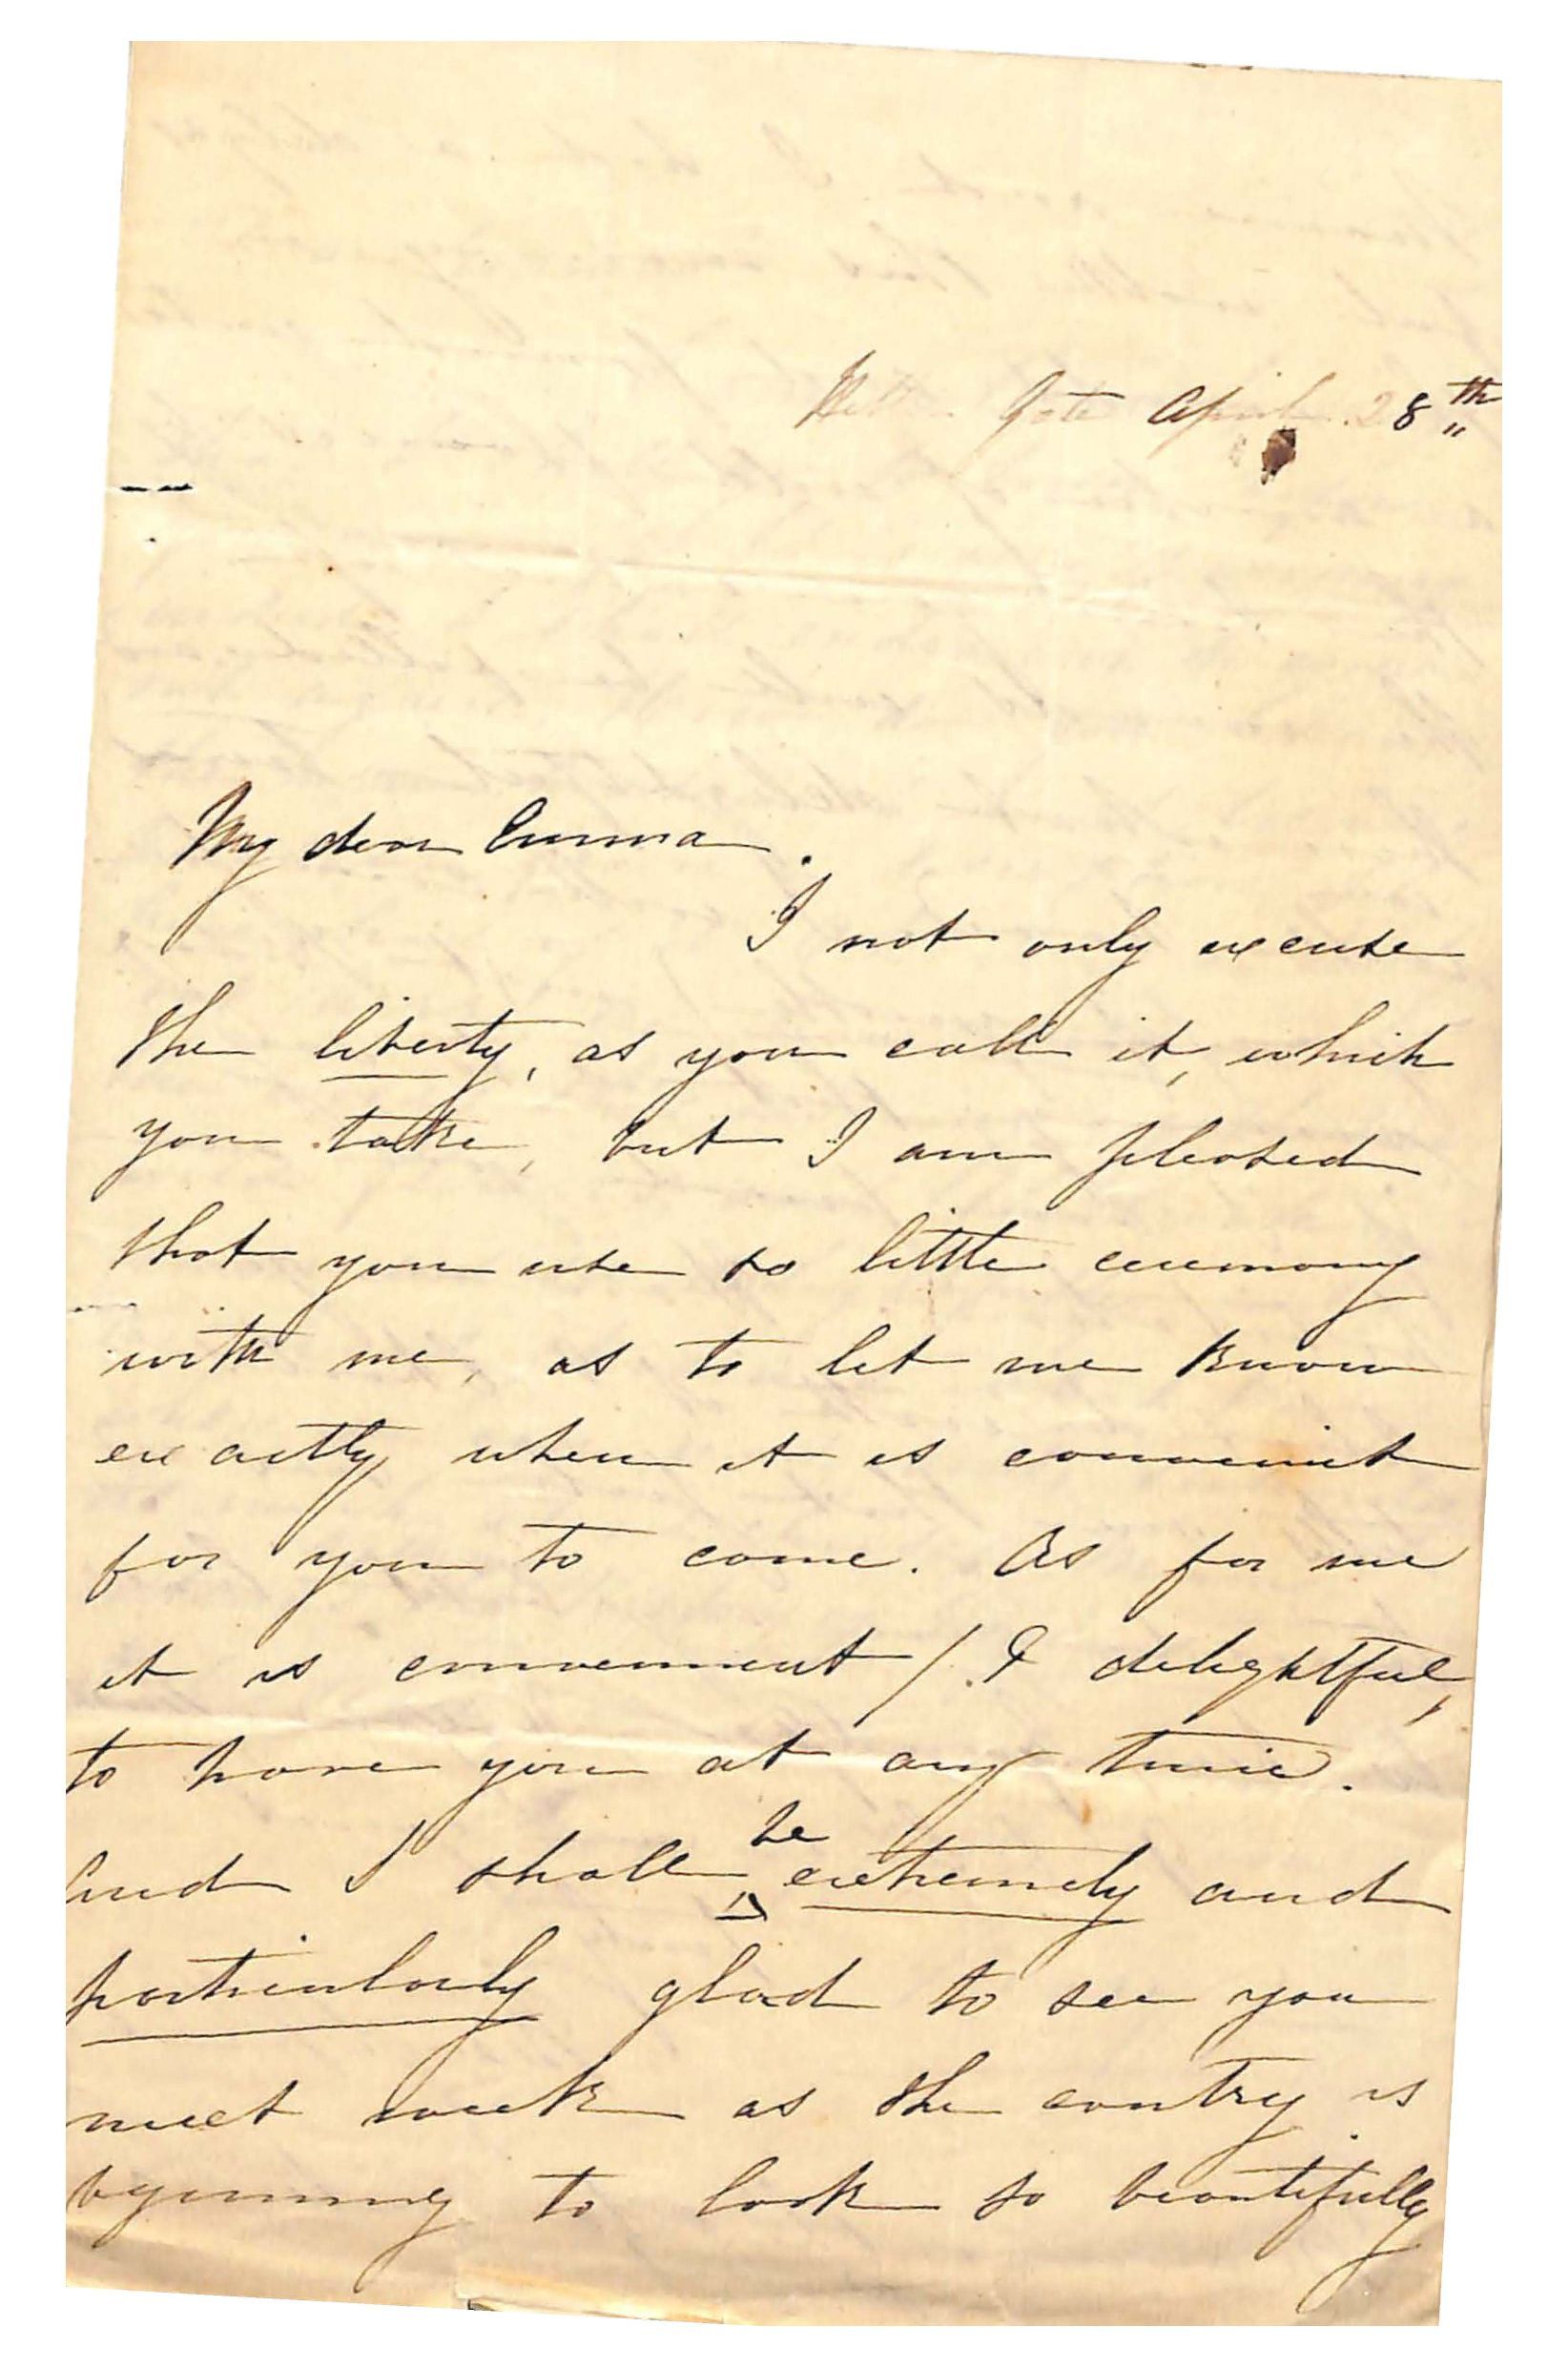 Hell Gate April 28th
My dear Emma.
I not only excuse
the liberty, as you call it, which
you take, but I am pleased
that you use so little ceremony
with me, as to let me know
exactly when it is convenient
for you to come. As for me
it is convenient / & delightful,
to have you at any time.
And I shall be extremely and
particularly glad to see you
next week as the contry is
beginning to look so beautifully